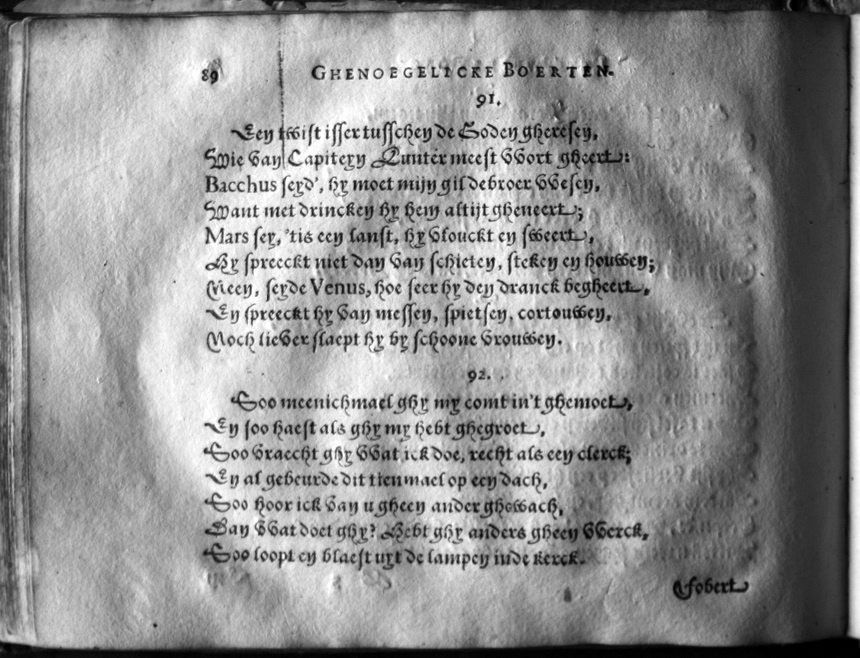 89 GHENOEGELICKE BOERTEN.
91.
Een twist isser tusschen de Goden gheresen,
Wie van Capiteyn Quntèr meest wort gheert:
Bacchus seyd', hy moet mijn gildebroer wesen,
Want met drincken hy hem altijt gheneert;
Mars sey, 'tis een lanst, hy vlouckt en sweert,
Hy spreeckt niet dan van schieten, steken en houwen;
Neen, seyde Venus, hoe seer hy den dranck begheert,
En spreeckt hy van messen, spietsen, cortouwen,
Noch liever slaept hy by schoone vrouwen.
92.
Soo meenichmael ghy my comt in't ghemoet,
En soo haest als ghy my hebt ghegroet,
Soo vraecht ghy wat ick doe, recht als een clerck;
En al gebeurde dit tienmael op een dach,
Soo hoor ick van u gheen ander ghewach,
Dan wat doet ghy? Hebt ghy anders gheen werck,
Soo loopt en blaest uyt de lampen inde kerck.